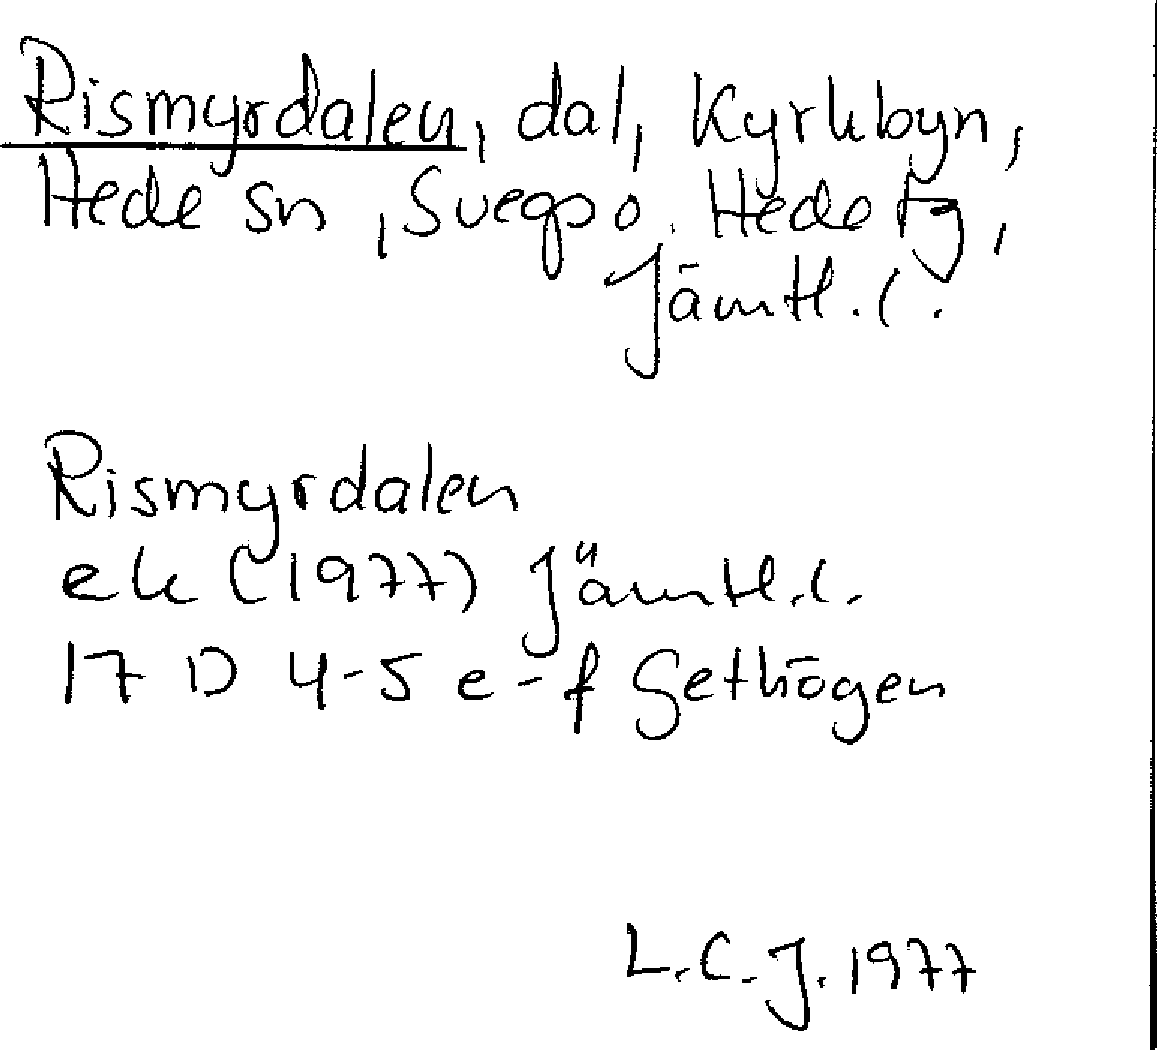 Rismyrdalen, dal, Kyrkbyn,
Hede sn, Svegs o. Hede tg,
Jämtl. l.
Rismyrdalen
ek (1977) Jämtl. l.
17 D 4-5 e-f Gethögen
L.C.J. 1977